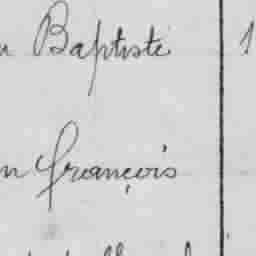 n Baptiste 1
n françois